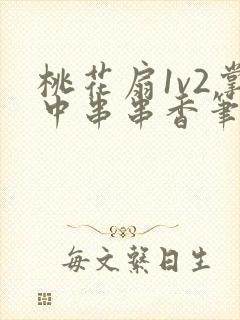 桃花扇1v2掌
中串串香笔
每文繫日生